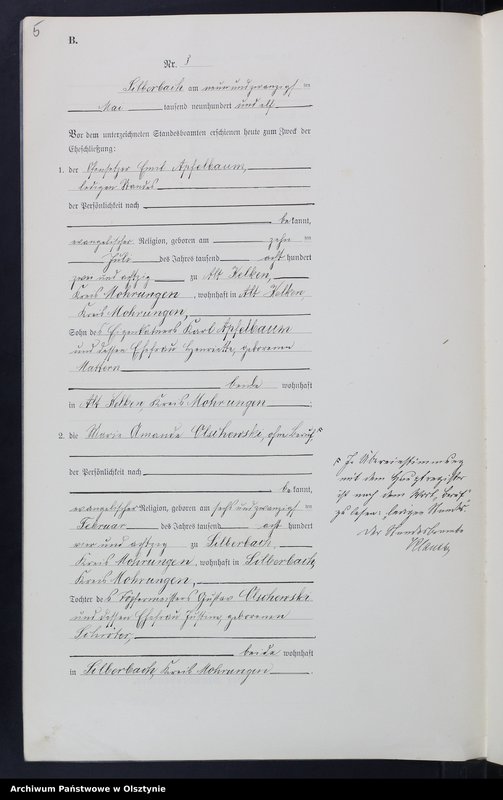 5
B.
Nr. 3
Silberbach am neunundzwanzigsten
Mai tausend neunhundert und elf
Vor dem unterzeichneten Standesbeamten erschienen heute zum Zweck der
Eheschließung:
1. der Ofensetzer Ernst Apfelbaum,
ledigen Standes
der Persönlichkeit nach
bekannt,
evangelischer Religion, geboren am zehnten
Juli des Jahres tausend acht hundert
zwei und achtzig zu Alt Kelken,
Kreis Mohrungen, wohnhaft in Alt Kelken,
Kreis Mohrungen,
Sohn des Eigenkätners Karl Apfelbaum
und dessen Ehefrau Henriette, geborenen
Mattern
beide wohnhaft
in Alt Kelken, Kreis Mohrungen.
2. die Maria Amanda Olschewski, ohne Beruf
der Persönlichkeit nach
bekannt,
evangelischer Religion, geboren am sechsundzwanzigsten
Februar des Jahres tausend acht hundert
vier und achtzig zu Silberbach,
Kreis Mohrungen, wohnhaft in Silberbach,
Kreis Mohrungen,
Tochter des Töpfermeisters Gustav Olschewski
und dessen Ehefrau Justine, geborenen
Schröter,
beide wohnhaft
in Silberbach, Kreis Mohrungen.
In Übereinstimmung
mit dem Hauptregister
ist nach dem Wort "Beruf"
zu lesen: "ledigen Standes".
Der Standesbeamte
Archiwum Państwowe w Olsztynie